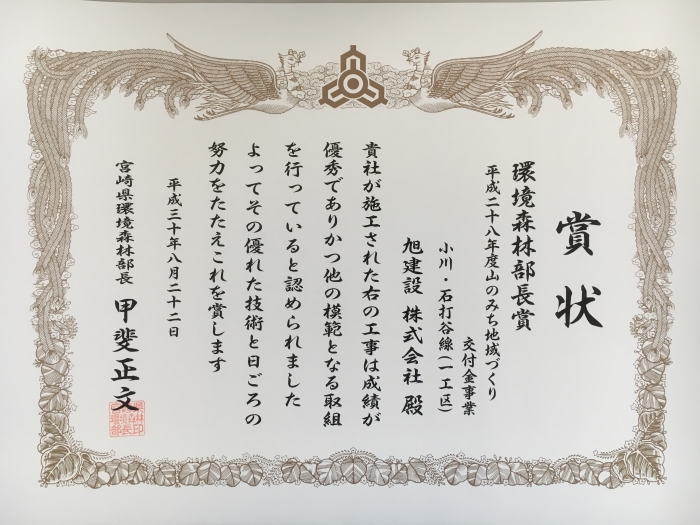 賞状
環境森林部長賞
平成二十八年度山のみち地域づくり
交付金事業
小川・石打谷線(一工区)
旭建設 株式会社 殿
貴社が施工された右の工事は成績が
優秀でありかつ他の模範となる取組
を行っていると認められました
よってその優れた技術と日ごろの
努力をたたえこれを賞します
平成三十年八月二十二日
宮崎県環境森林部長 甲斐正文